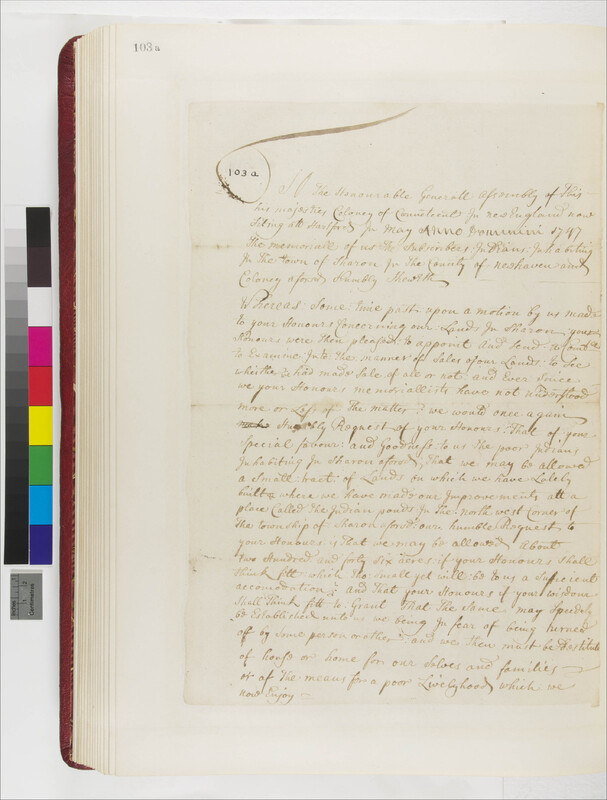 103a
103a
To The Honourable Generall Assembly of This
his majesties Colony of Connecticut In new England now
Siting att Hartford In may Anno Dommini 1747
The memoriall of us The Subscribers Indians Inhabiting
In The town of Sharon In The County of newhaven and
Colony aforsd Humbly Sheweth
Whereas: Some time past: upon a motion by us made
to your Honours Concerning our Lands In Sharon your
Honours were then pleased: to appoint and Send a Comttee
to Examine Into: The manner of Sales of our Lands: to See
whether we had made Sale of all or not and Ever Since
we your Honours memoriallists have not understood
more or Less of The matter: we would once again
Humbly Request of your Honours: That of your
Special favour: and Goodness to us The poor Indians
Inhabiting In Sharon aforsd That we may be allowed
a Small: tract of Lands on which we have Lately
built & where we have made our Improvements att a
place Called The Indian ponds In The north west Corner of
The township of Sharon aforsd our humble Request to
your Honours is That we may be allowed about
two Hundred and forty Six acres if your Honours Shall
think fitt which tho Small yet will: be to us a Sufficient
accomodation: and That your Honours if your wisdome
Shall Think fitt to Grant That The Same may Speedily
be Established unto us we being In fear of being turned
off by Some person or other and we Then must be Destitute
of house or home for our Selves and families
or of The means for a poor Livelyhood which we
now Enjoy
Inches
Centimetres